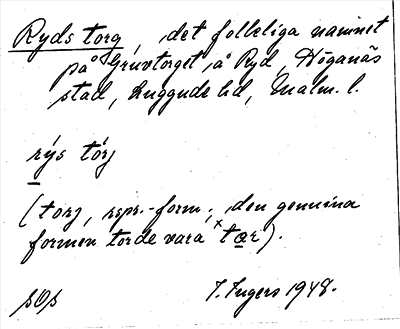 Ryds torg, det folkliga namnet
på Gruvtorget, å Ryd, Höganäs
stad, Luggude hd, Malm. l.
rýs tórj
(torj, rspr.-form; den genuina
formen torde vara ˣtær).
I. Ingers 1948.